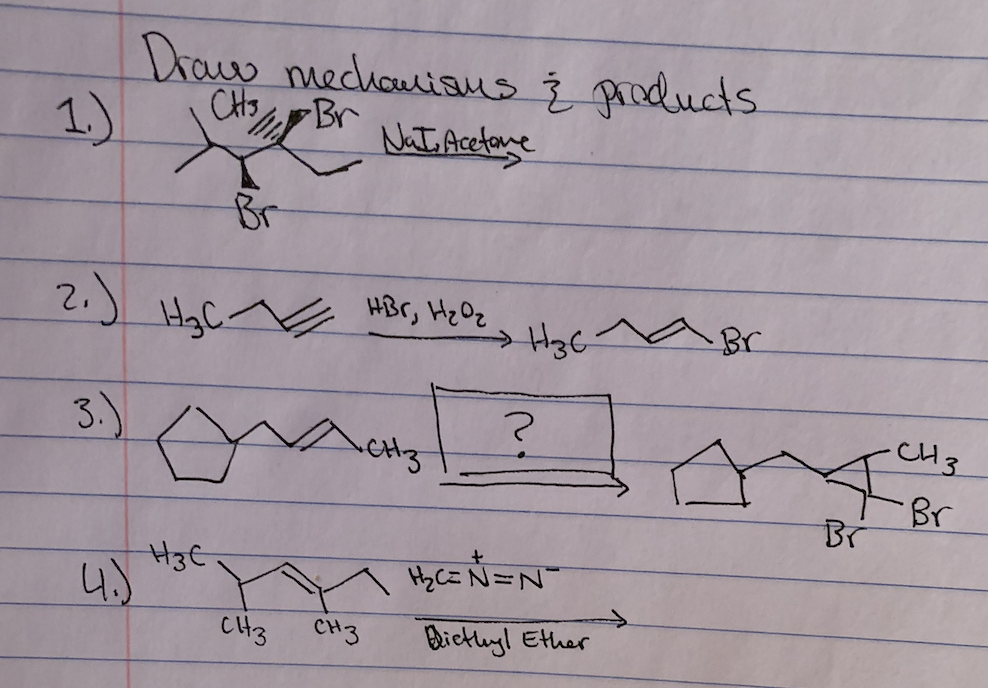 Draw mechanisms & products
1.) CH3 Br NaI, Acetone
Br
2.) H3C HBr, H2O2 H3C Br
3.) ? CH3 CH3
Br Br
4.) H3C H2C=N+=N-
CH3 CH3 Diethyl Ether